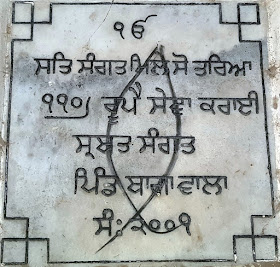 ੴ
ਸਤਿ ਸੰਗਤ ਮਿਲੇ ਸੋ ਤਰਿਆ
੧੧੦੍ਰ ਰੂਪੈ ਸੇਵਾ ਕਰਾਈ
ਸ੍ਰਬਤ ਸੰਗਤ
ਪਿੰਡ ਬਾਜਾ ਵਾਲਾ
ਸੰ: ੨੦੦੧